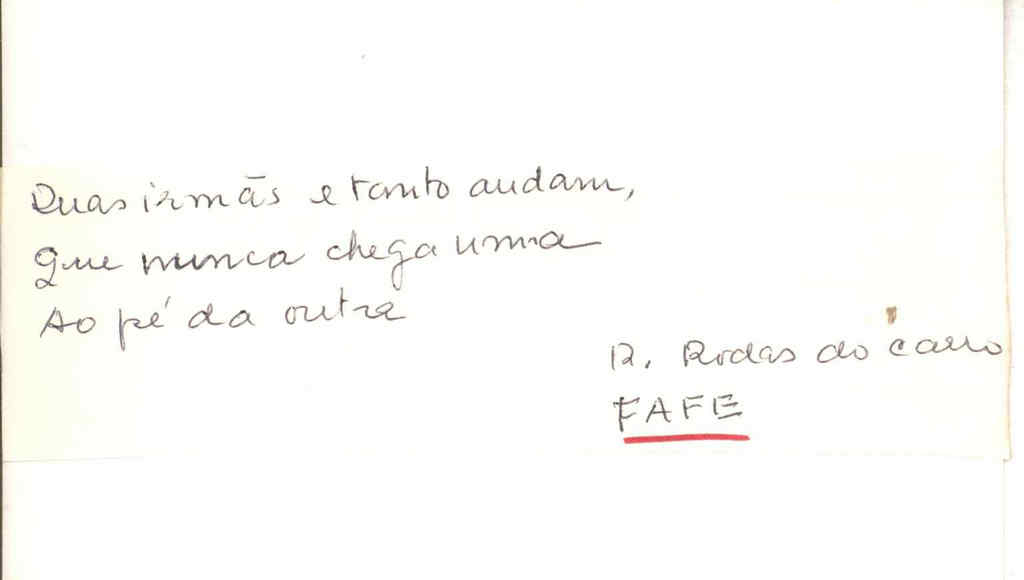 Duas irmãs e tanto andam,
Que nunca chega uma
Ao pé da outra
R. Rodas do carro
FAFE